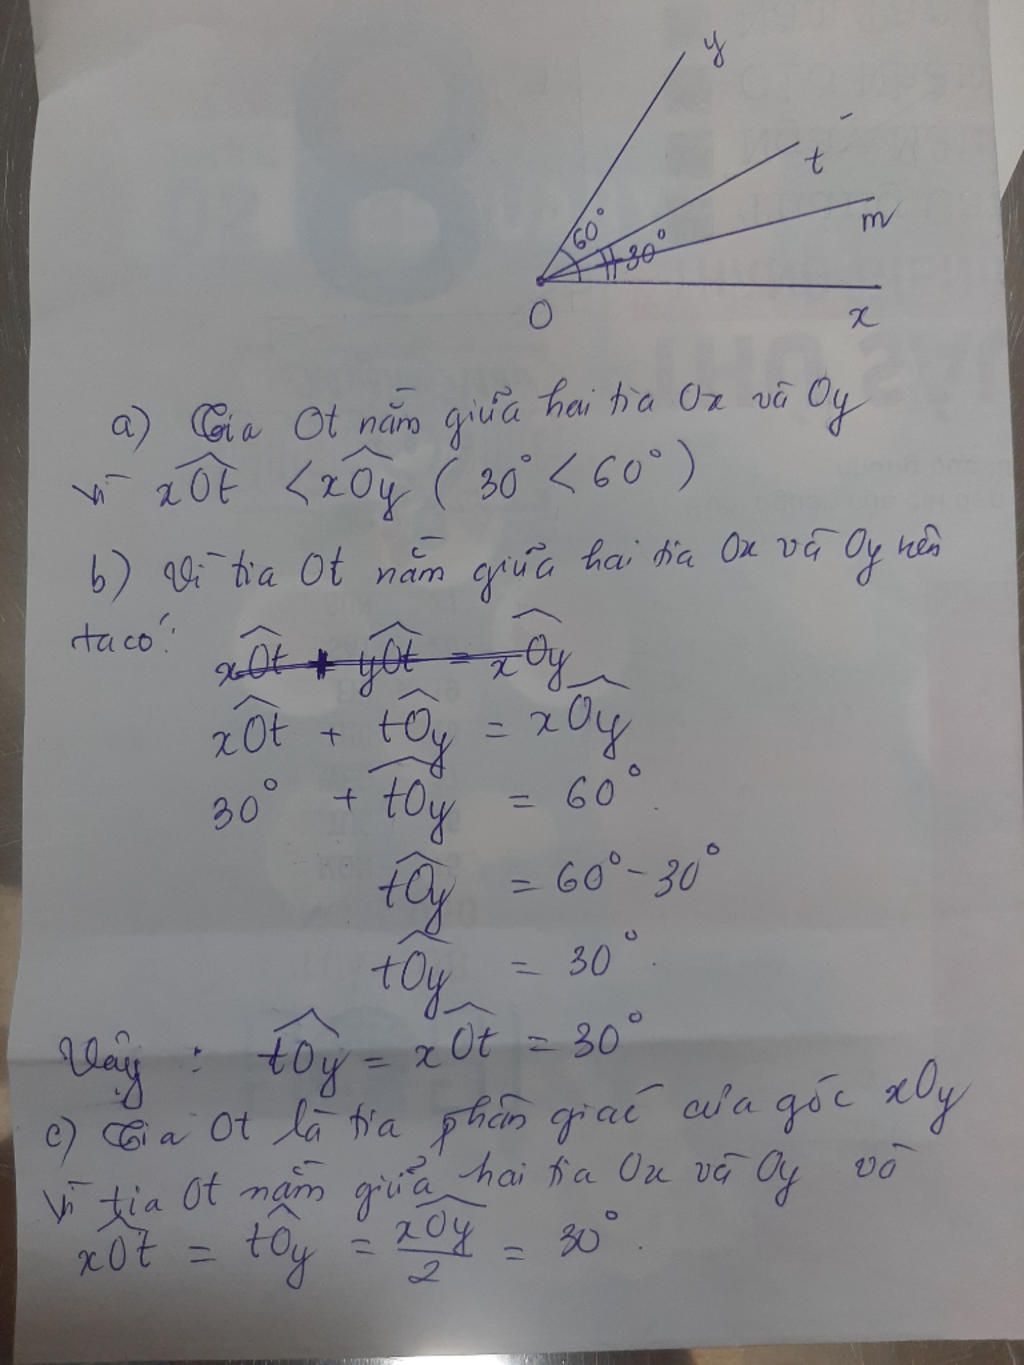 y
t
m
60°
30°
O
x
a) Tia Ot nằm giữa hai tia Ox và Oy
vì xOt < xOy ( 30° < 60° )
b) Vì tia Ot nằm giữa hai tia Ox và Oy nên
ta có:
xOt + yOt = xOy
xOt + tOy = xOy
30° + tOy = 60°.
tOy = 60° - 30°
tOy = 30°.
Vậy : tOy = xOt = 30°
c) Tia Ot là tia phân giác của góc xOy
Vì tia Ot nằm giữa hai tia Ox và Oy và
xOt = tOy = xOy/2 = 30°.